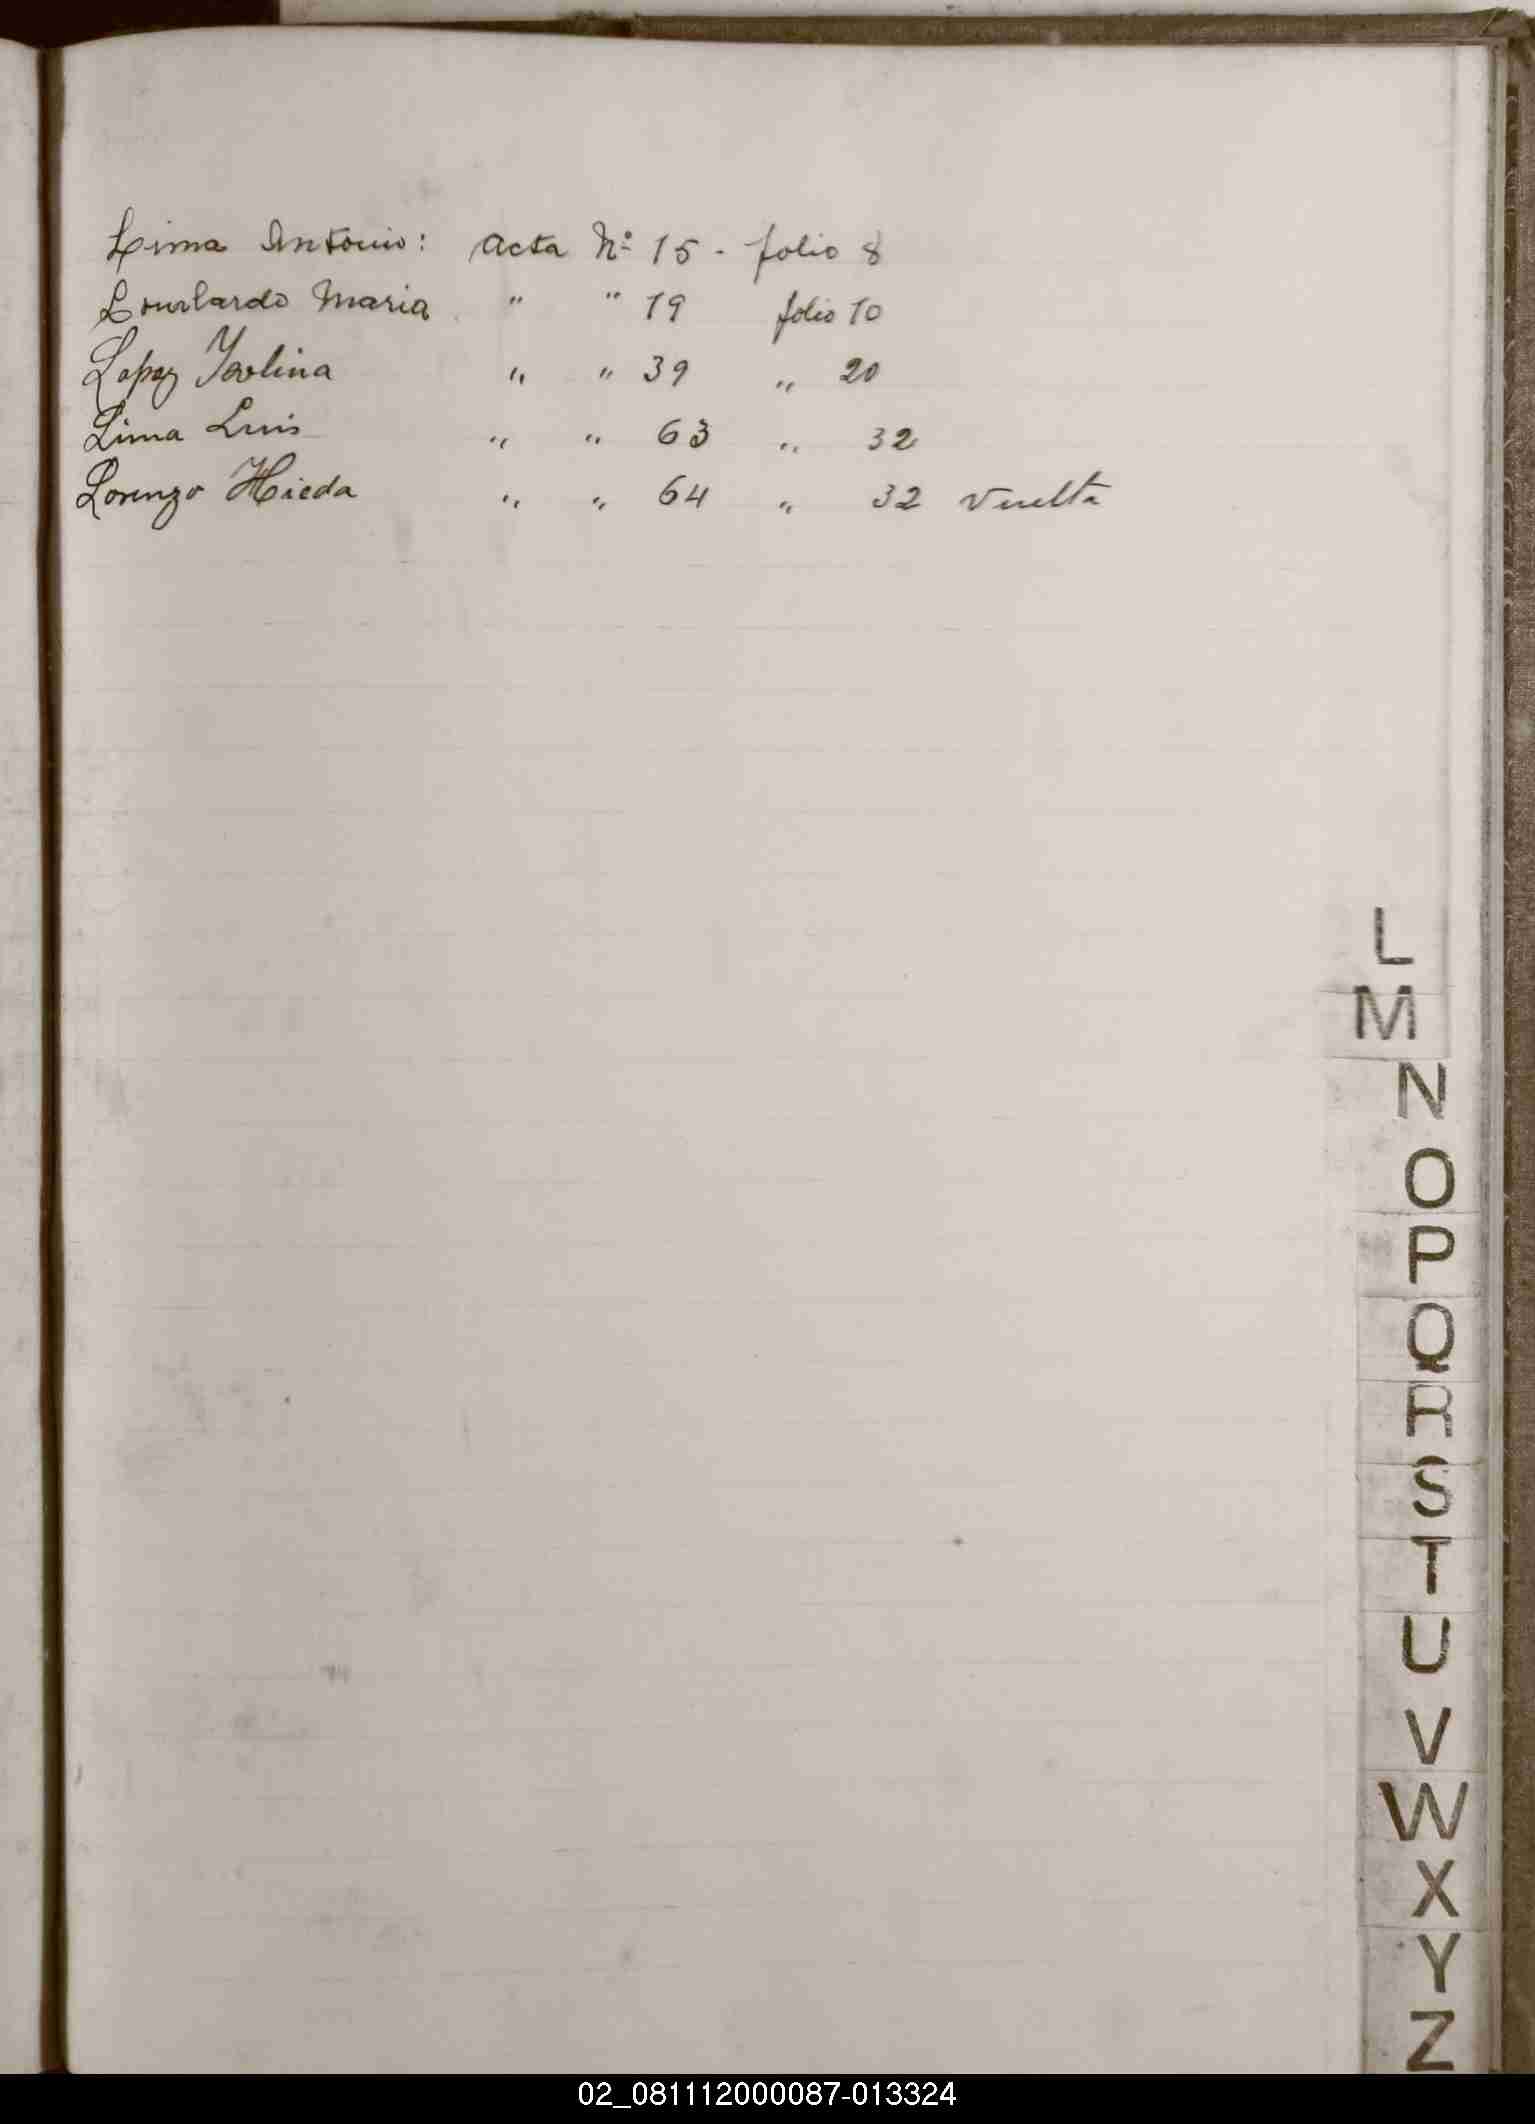 Lima Antonio: Acta Nº 15 - folio 8
Lombardo Maria " " 19 folio 10
Lopez Isolina " " 39 " 20
Lima Luis " " 63 " 32
Lorenzo " " 64 " 32 vuelta
L
M
N
O
P
Q
R
S
T
U
V
W
X
Y
Z
02_081112000087-013324